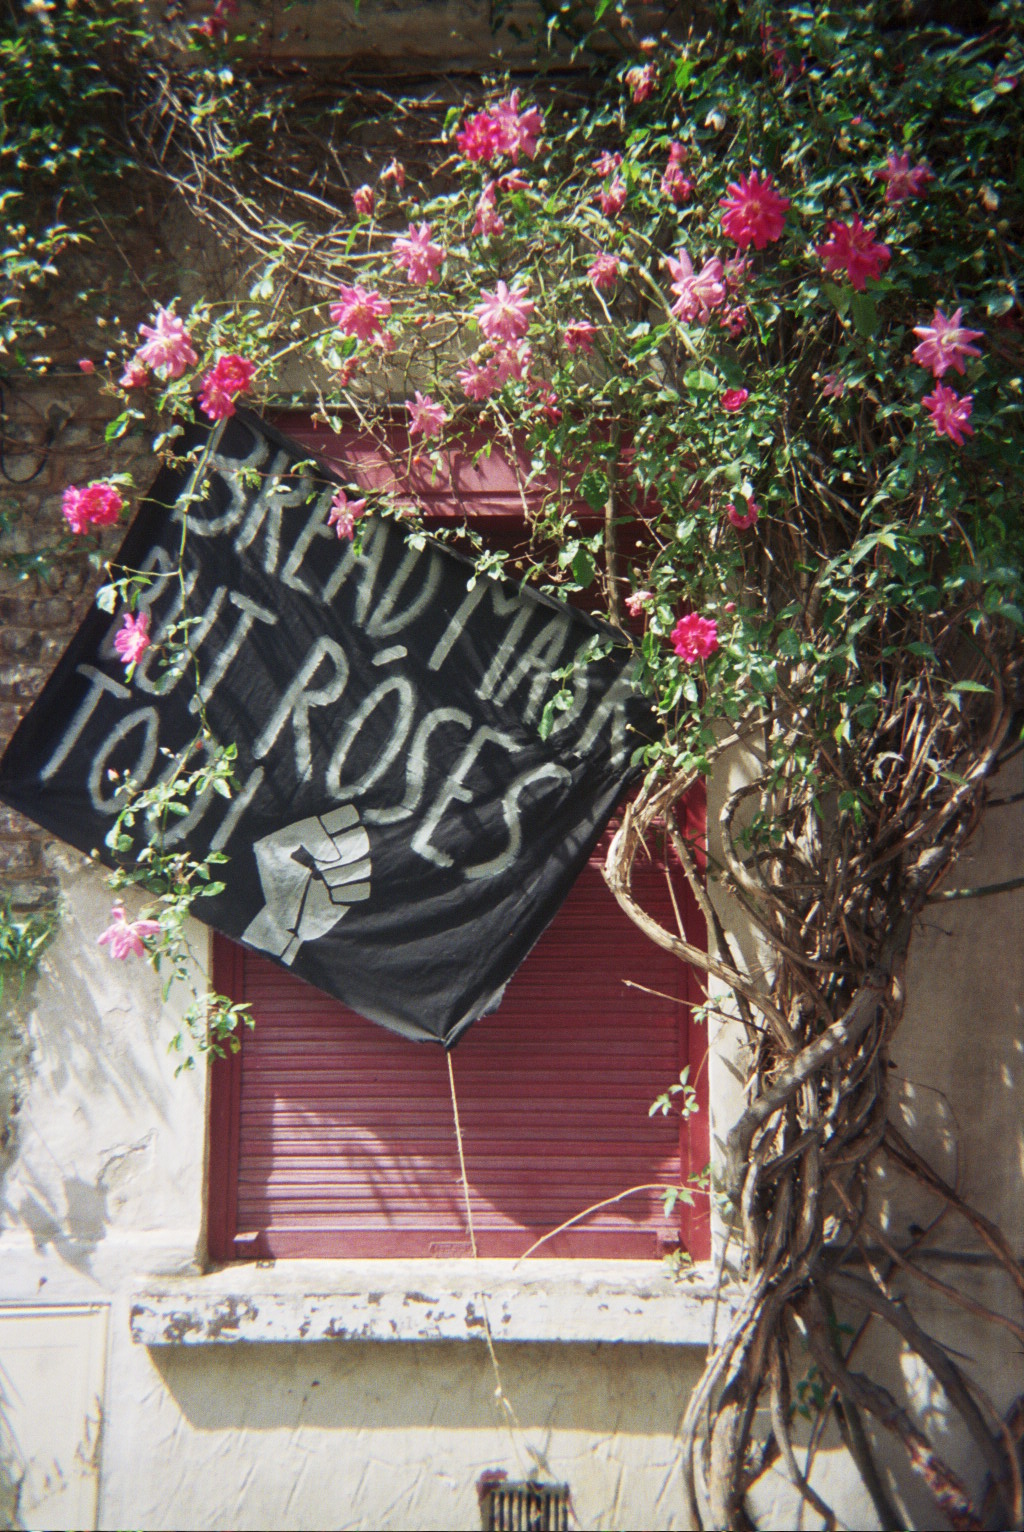 BREAD MASK
BUT RÖSES
TOO!